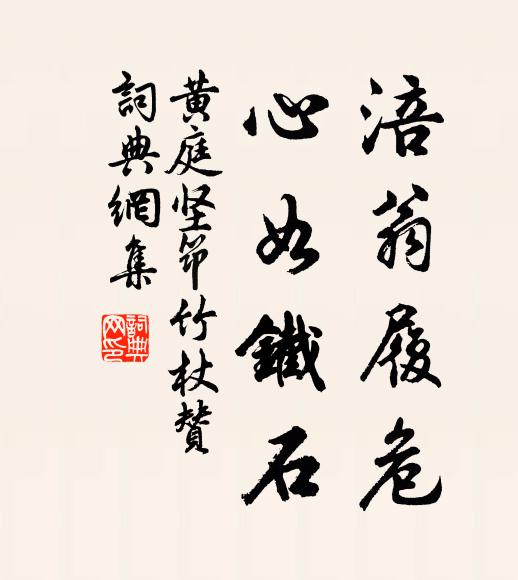 涪翁履危
心如鐵石
黄庭坚笻竹杖贊
詞典網集
詞典
网印